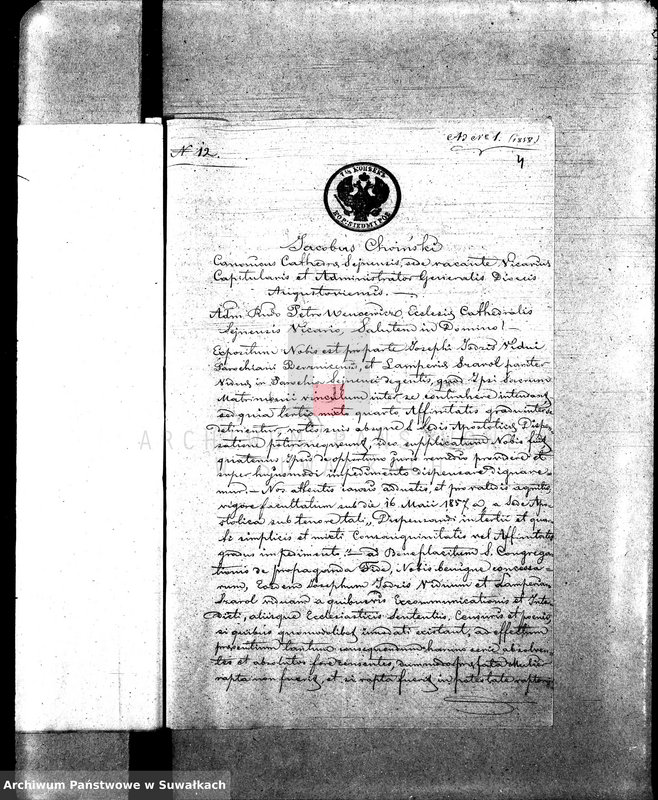 Ad Nr 1. (1858)
4
N 12.
7½ KOP
Jacobus Choiński
Canonicus Cathedra Sejnensis, sede vacante Vicarius
Capitularis et Administrator Generalis Diecis
Augustoviensis.
Adm Rndo Petro Wencewicz Ecclesia Cathedralis
Sejnensis Vicario, Salutem in Domino!
Expositum Nobis est pro parte Josephi Jodzis Vidui
Parochiani Bereznicensis, et Lamperis Szarol pariter
Vidua in Parochia Sejnensi degentis, quod Ipsi Sacrum
Matrimonii vinculum inter se contrahere intendant
sed quia tertio mixto quarto Affinitatis gradu inter se
detinentur, votis suis absque S. Sedis Apostolica Dispen
satione potiri nequeunt, ideo supplicatum Nobis fuit
quatenus Ipsis de opportuno juris remedio providere et
super hujusmodi impedimento dispensare dignare
mur. Nos attentis causis adductis, et pro validis agnitis,
vigore facultatum sub die 16 Maii 1857 a. a Sede Apo
stolica sub tenore tali „Dispensandi in tertio et quar
to simplicis et mixti Consanguinitatis vel Affinitatis
gradus impedimento, ad Beneplacitum S. Congrega
tionis de propaganda Fide, Nobis benigne concessa
rum, Eosdem Josephum Jodzis Viduum et Lamperam
Szarol viduam a quibusvis Excommunicationis et Inter
dicti, aliisque Ecclesiasticis Sententiis, Censuris et poenis
si quibus quomodolibet innodati existant, ad effectum
presentium tantum consequendum harum serie absolven
tes et absolutos fore censentes, dummodo prafata Mulier
rapta non fuerit, et si rapta fuerit in potestate raptoris
ARCH
Archiwum Państwowe w Suwałkach